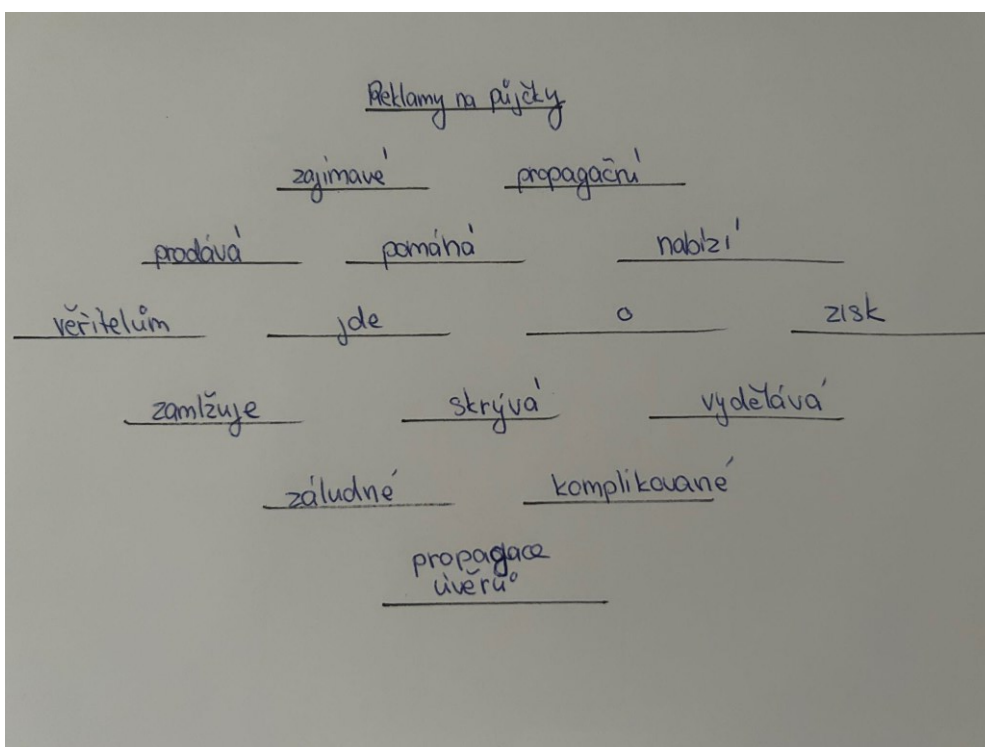 Reklamy na půjčky
zajímavé propagační
prodává pomáhá nabízí
věřitelům jde o zisk
zamlžuje skrývá vydělává
záludné komplikované
propagace
úvěrů